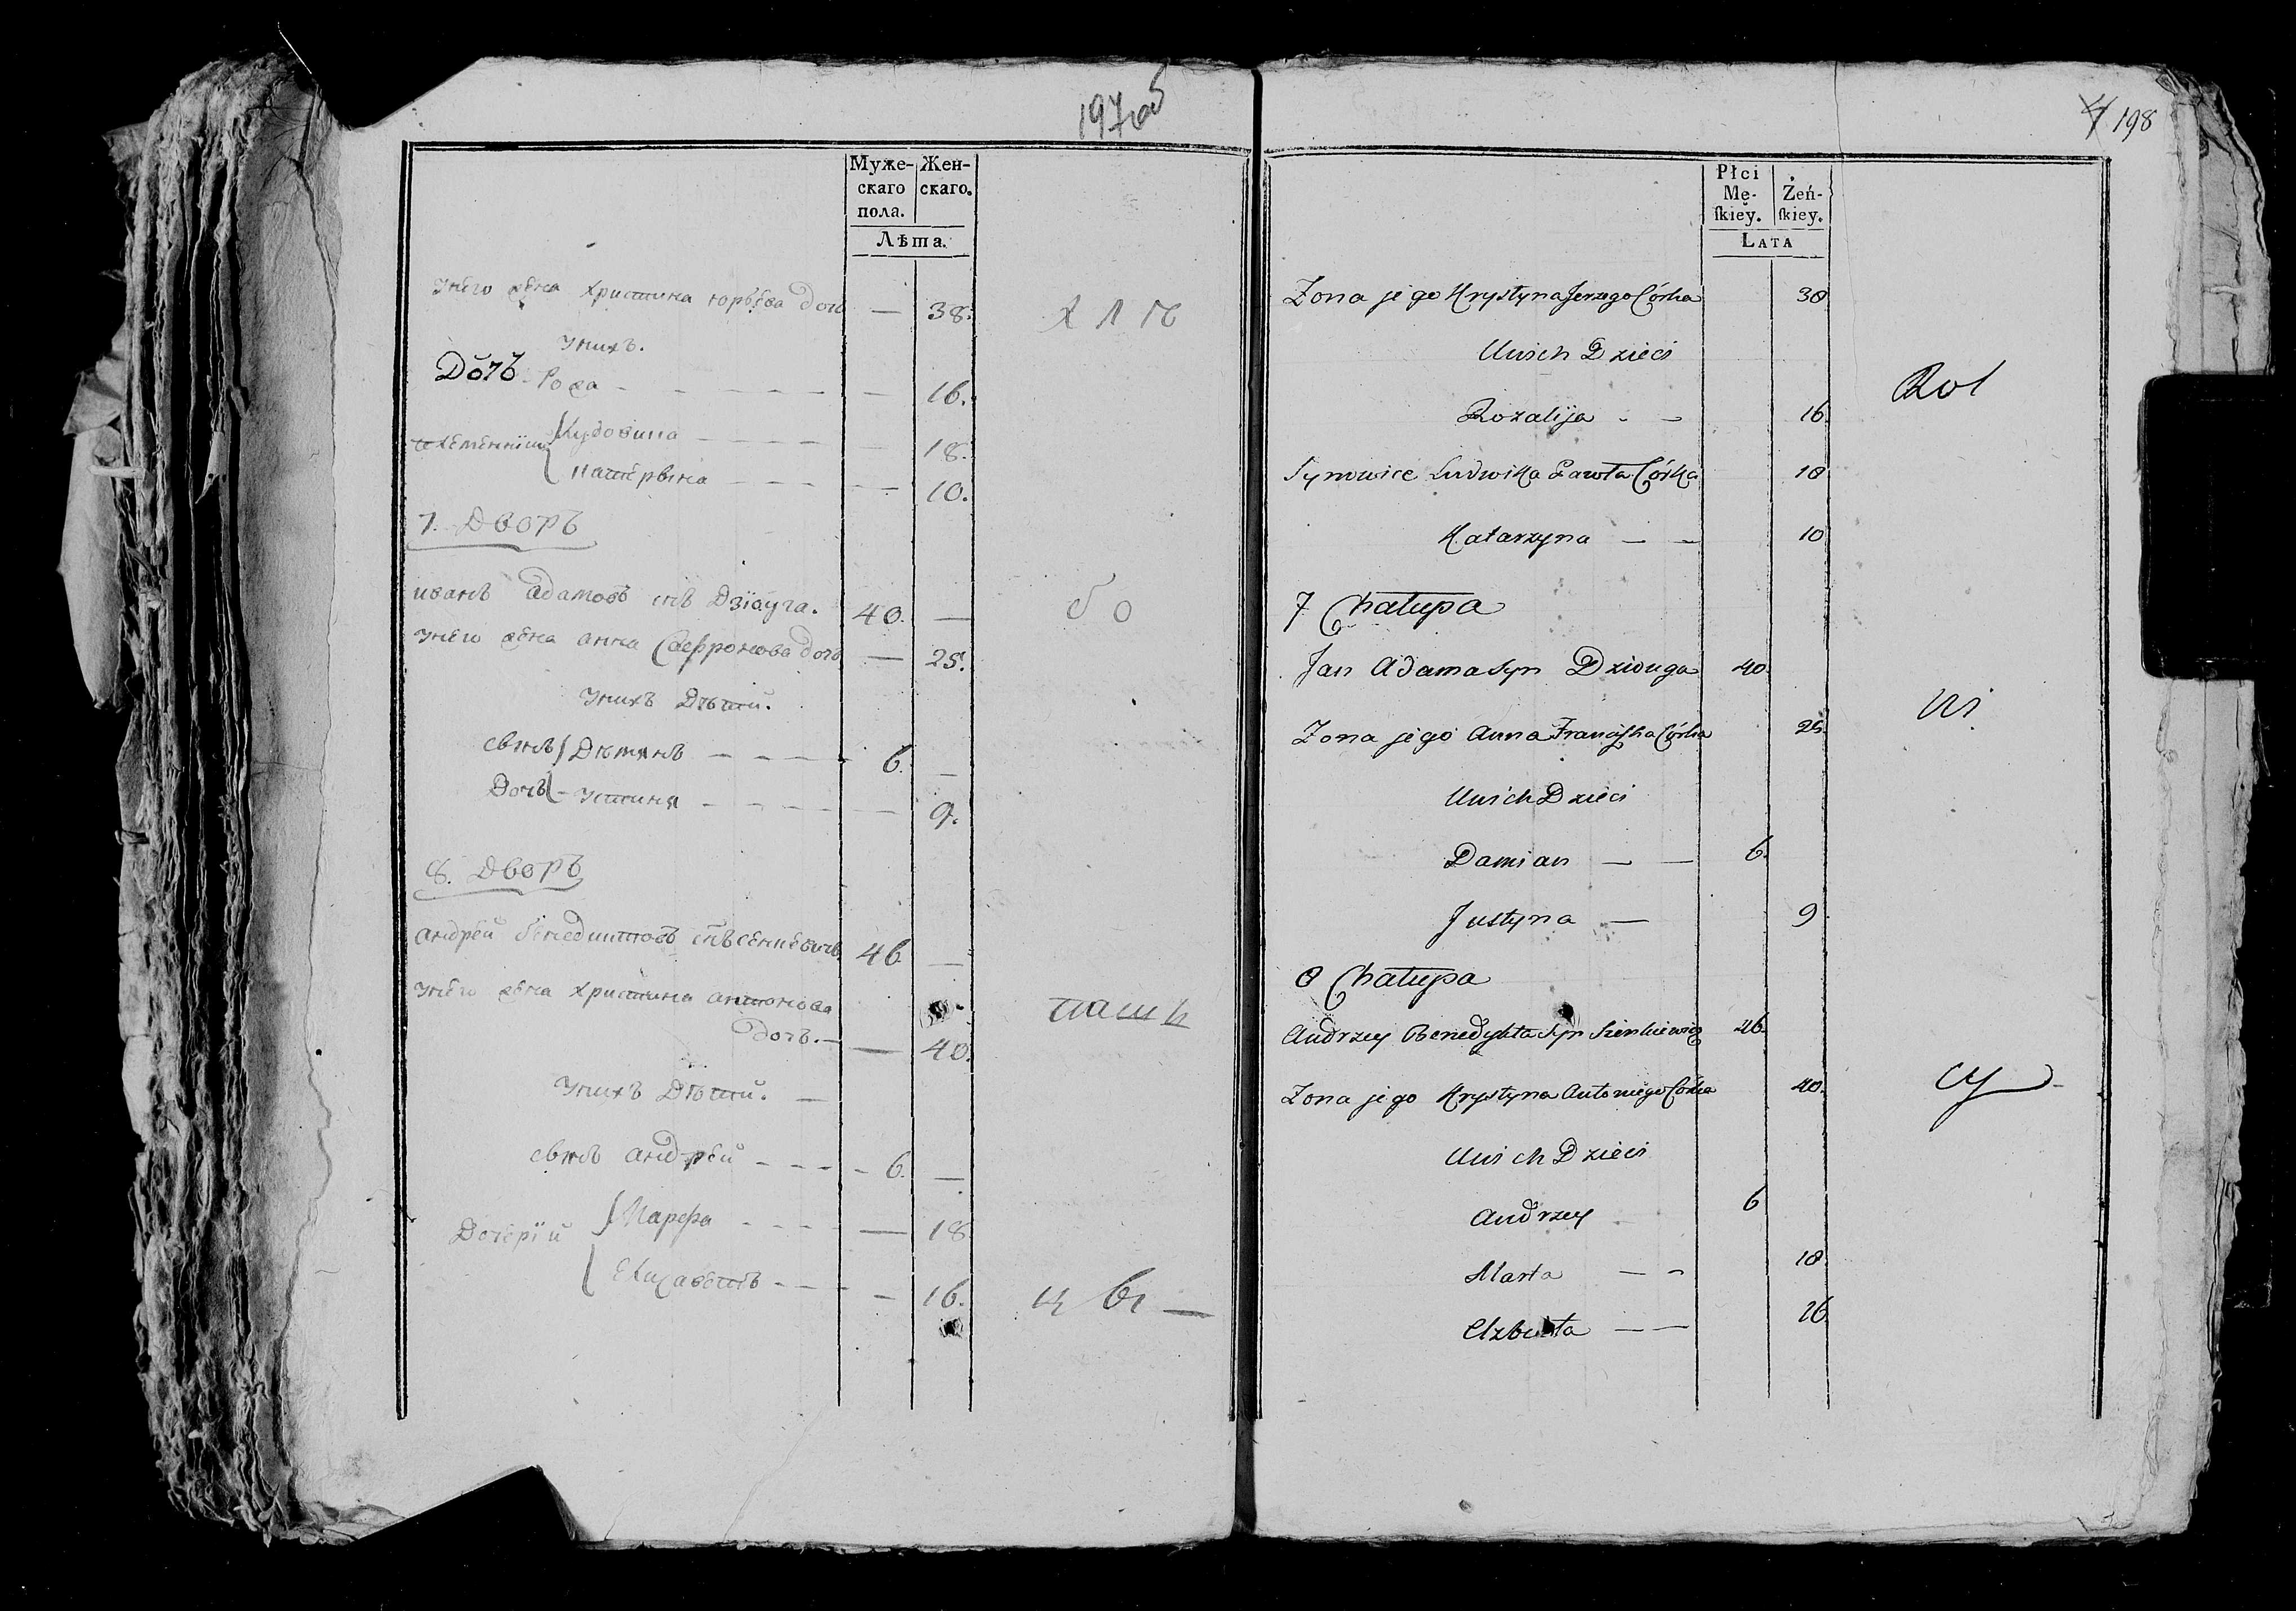 197об
Муже-
скаго
пола.
Жен-
скаго.
Лѣта.
у него жена христина юрьева дочь — 38.
у нихъ.
Дочь Роза — 16.
племенницы Людовика — 18.
катерына — 10.
7. Дворъ
иванъ адамовъ снъ Дзіауга. 40. —
у него жена анна Сафронова дочь — 25.
у нихъ Дѣти.
сынъ Демянъ 6. —
Дочь Устиня — 9.
8. Дворъ
андрей бенедиктовъ снъ сенкевичь 46 —
у него жена христина антонова
дочь. — 40.
у нихъ Дѣти. —
сынъ андрей 6. —
Дочерїи Марфа — 18
Елизаветъ — 16.
хлѣ
бо
паш
цы —
4 198
Płci
Mę-
skiey.
Żeń-
skiey.
Lata
Zona jego Krystyna Jerzego Córka 38
U nich Dzieci
Rozalija 16.
Synowice Ludwika Pawła Córka 18
Katarzyna 10
7 Chałupa
Jan Adama Syn Dziouga 40.
Zona jego Anna Franciszka Córka 25.
U nich Dzieci
Damian 6.
Justyna 9
8 Chałupa
Andrzey Benedykta Syn Sienkiewicz 46.
Zona jego Krystyna Antoniego Córka 40.
U nich Dzieci
Andrzey 6
Marta 18.
Elzbieta 16
Rol
ni
cy